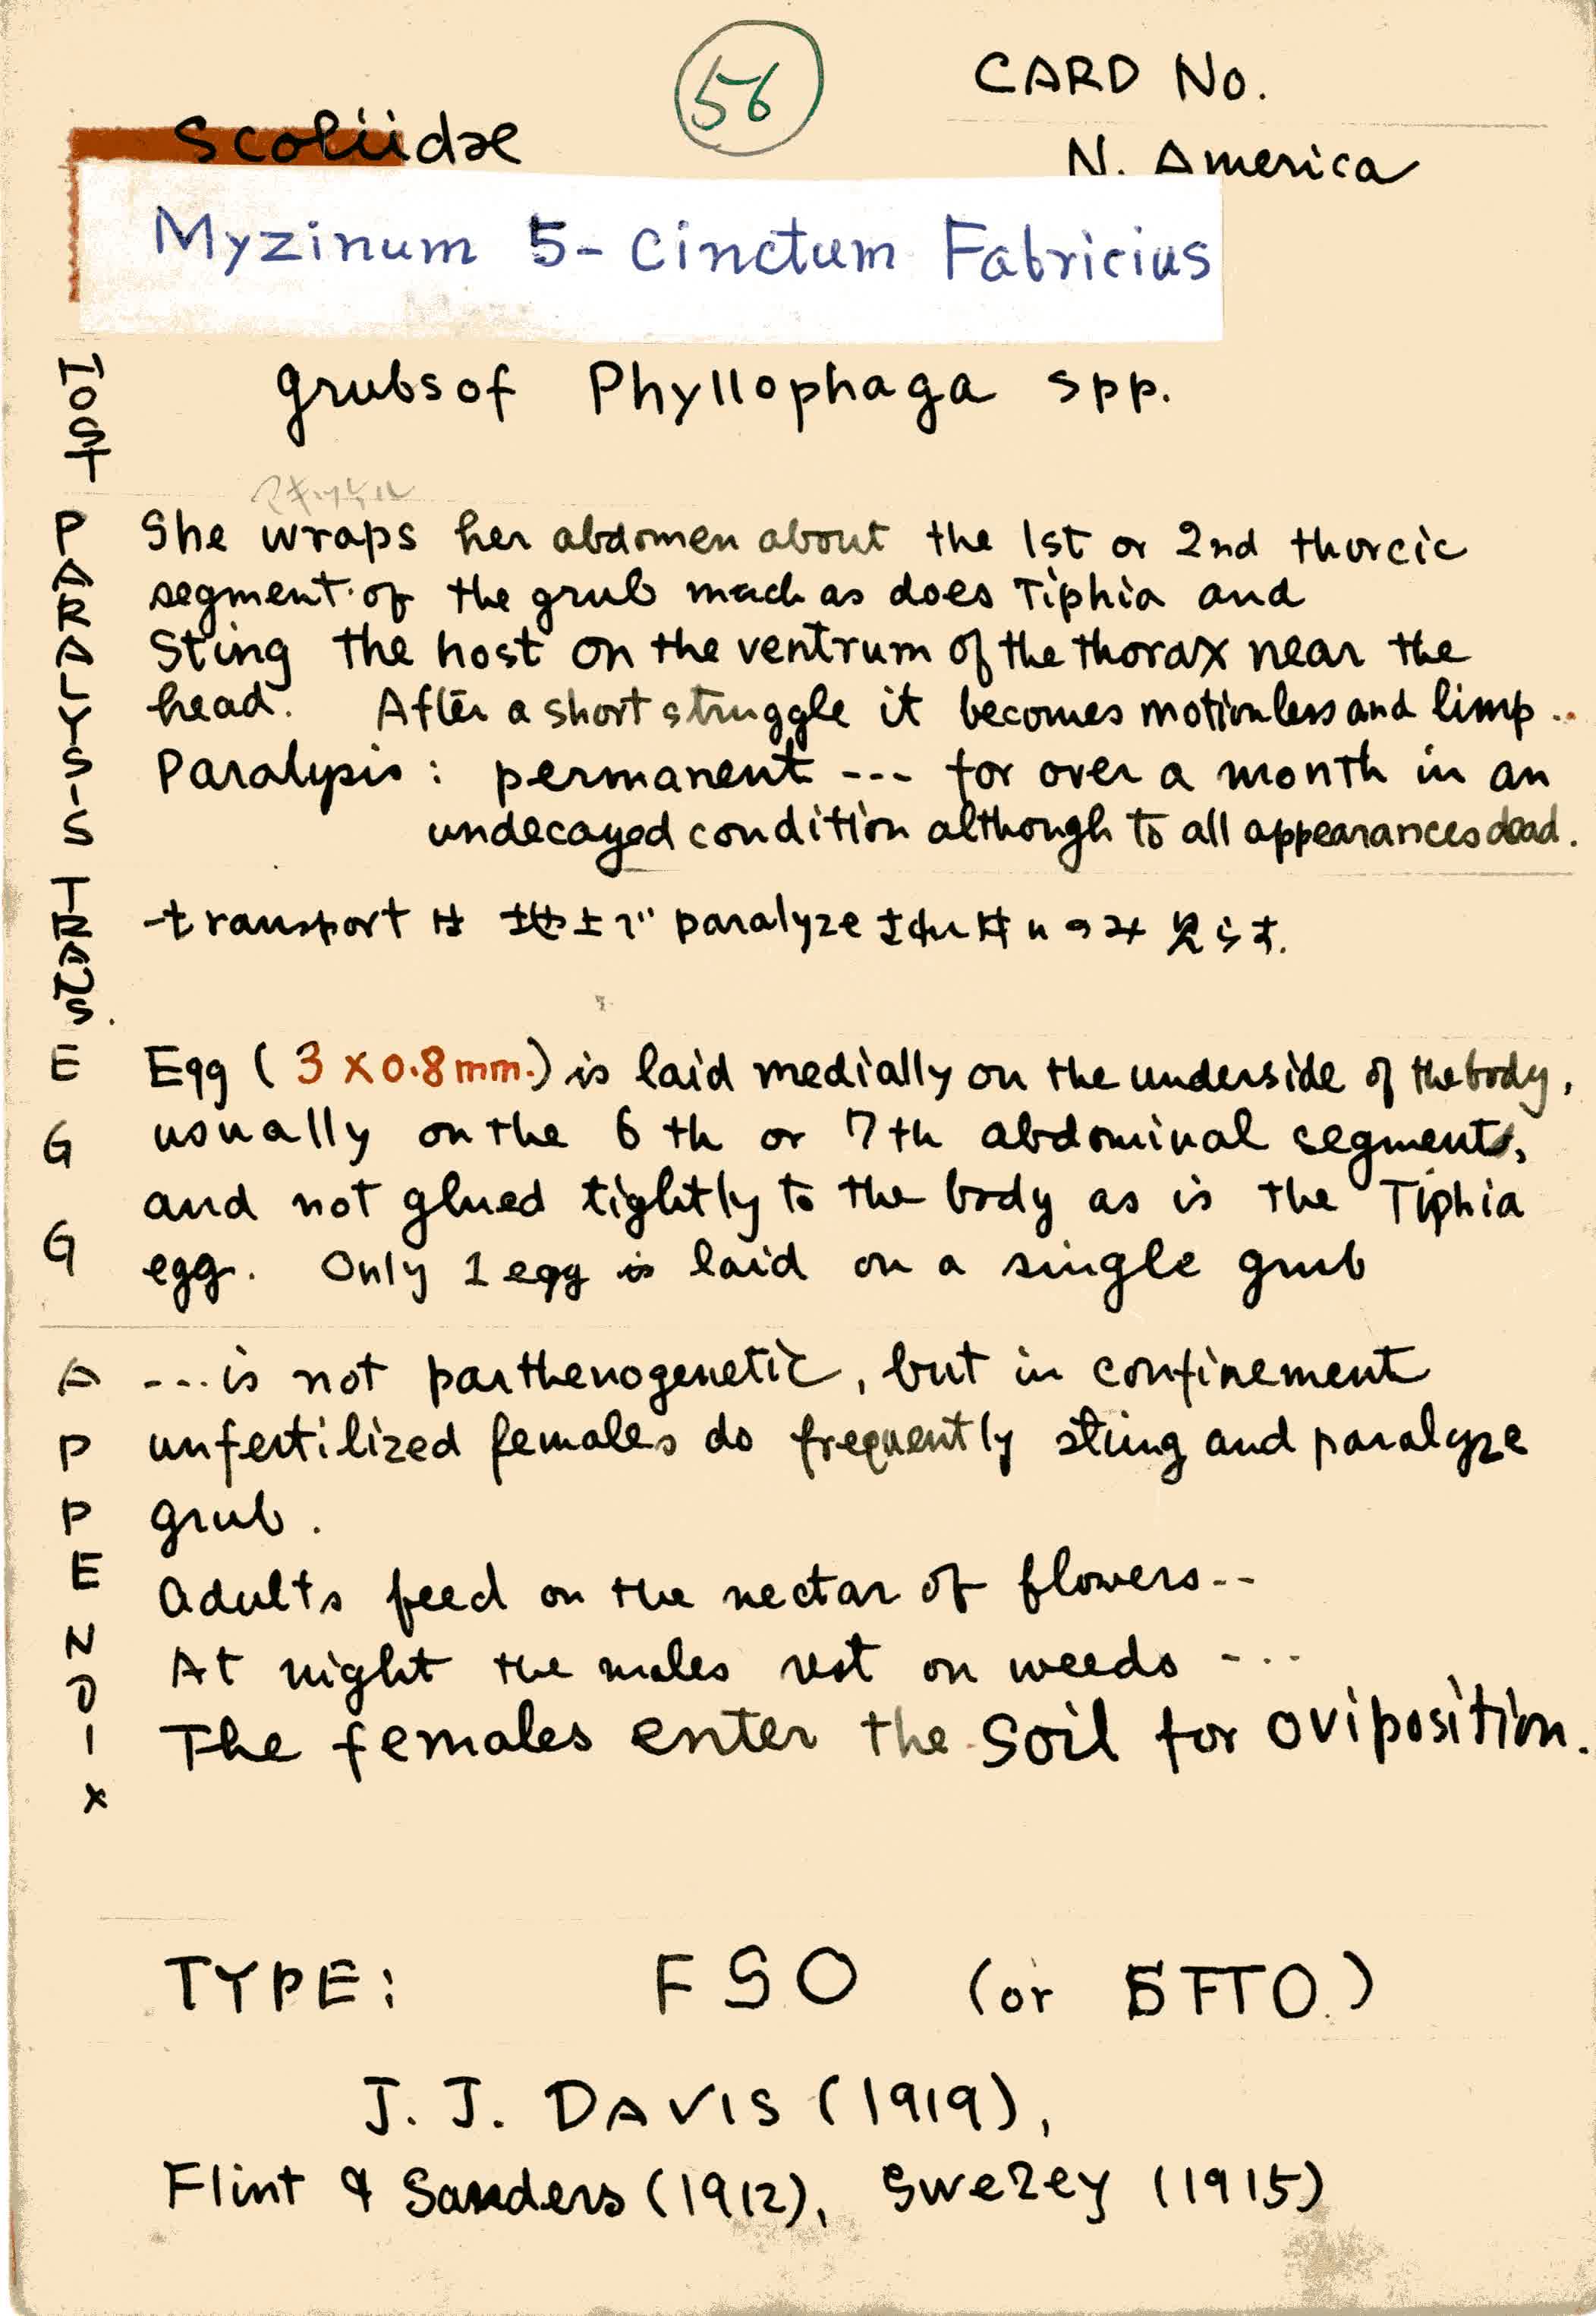 56
CARD No.
Scoliidae
N. America
Myzinum 5-cinctum Fabricius
HOST
grubs of Phyllophaga spp.
PARALYSIS
マキツケル
She wraps her abdomen about the 1st or 2nd thorcic
segment of the grub much as does Tiphia and
Sting the host on the ventrum of the thorax near the
head. After a short struggle it becomes motionless and limp..
Paralysis: permanent --- for over a month in an
undecayed condition although to all appearances dead.
TRANS.
transport は 地土で paralyze
EGG
Egg (3 x 0.8 mm.) is laid medially on the underside of the body,
usually on the 6th or 7th abdominal segments,
and not glued tightly to the body as is the Tiphia
egg. Only 1 egg is laid on a single grub
APPENDIX
--- is not parthenogenetic, but in confinement
unfertilized females do frequently sting and paralyze
grub.
Adults feed on the nectar of flowers--
At night the males rest on weeds ---
The females enter the soil for oviposition.
TYPE: FSO (or STTO.)
J. J. DAVIS (1919),
Flint & Sanders (1912), Swezey (1915)